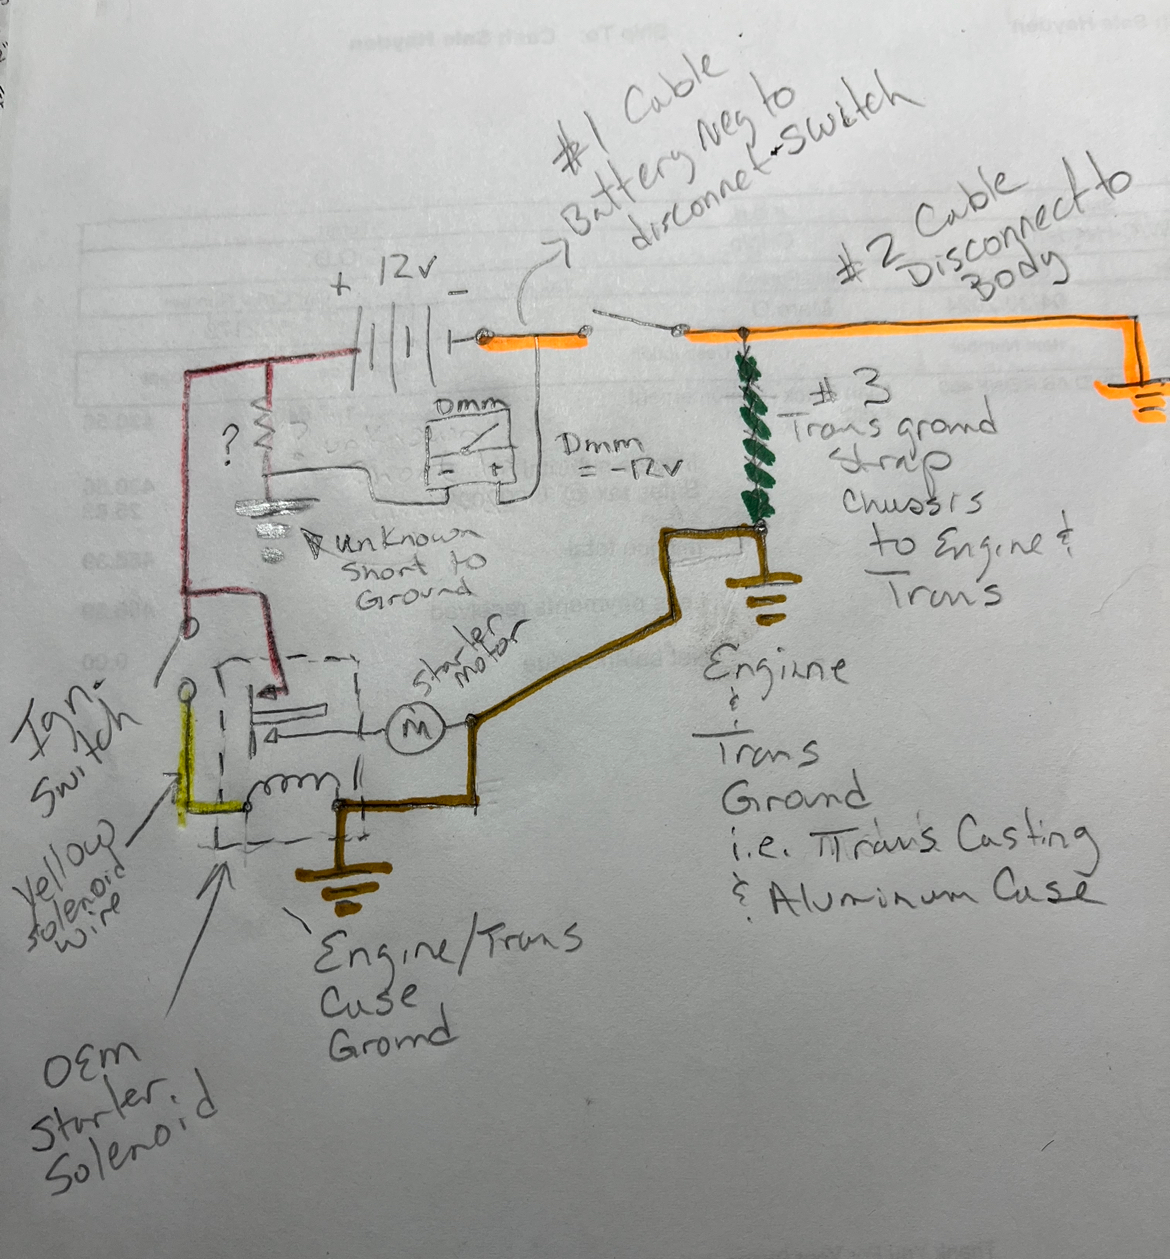 #1 Cable
Battery Neg to
disconnet switch
#2 Cable
Disconnect to
Body
+ 12v -
Dmm
- +
Dmm
= -12v
?
unknown
short to
Ground
#3
Trans ground
strap
Chassis
to Engine &
Trans
Ign.
Switch
Starter
motor
M
Yellow
Solenoid
wire
Engine
&
Trans
Ground
i.e. Trans Casting
& Aluminum Case
Engine/Trans
Case
Ground
OEM
Starter
Solenoid
Ship To: Cash Sale Hayden